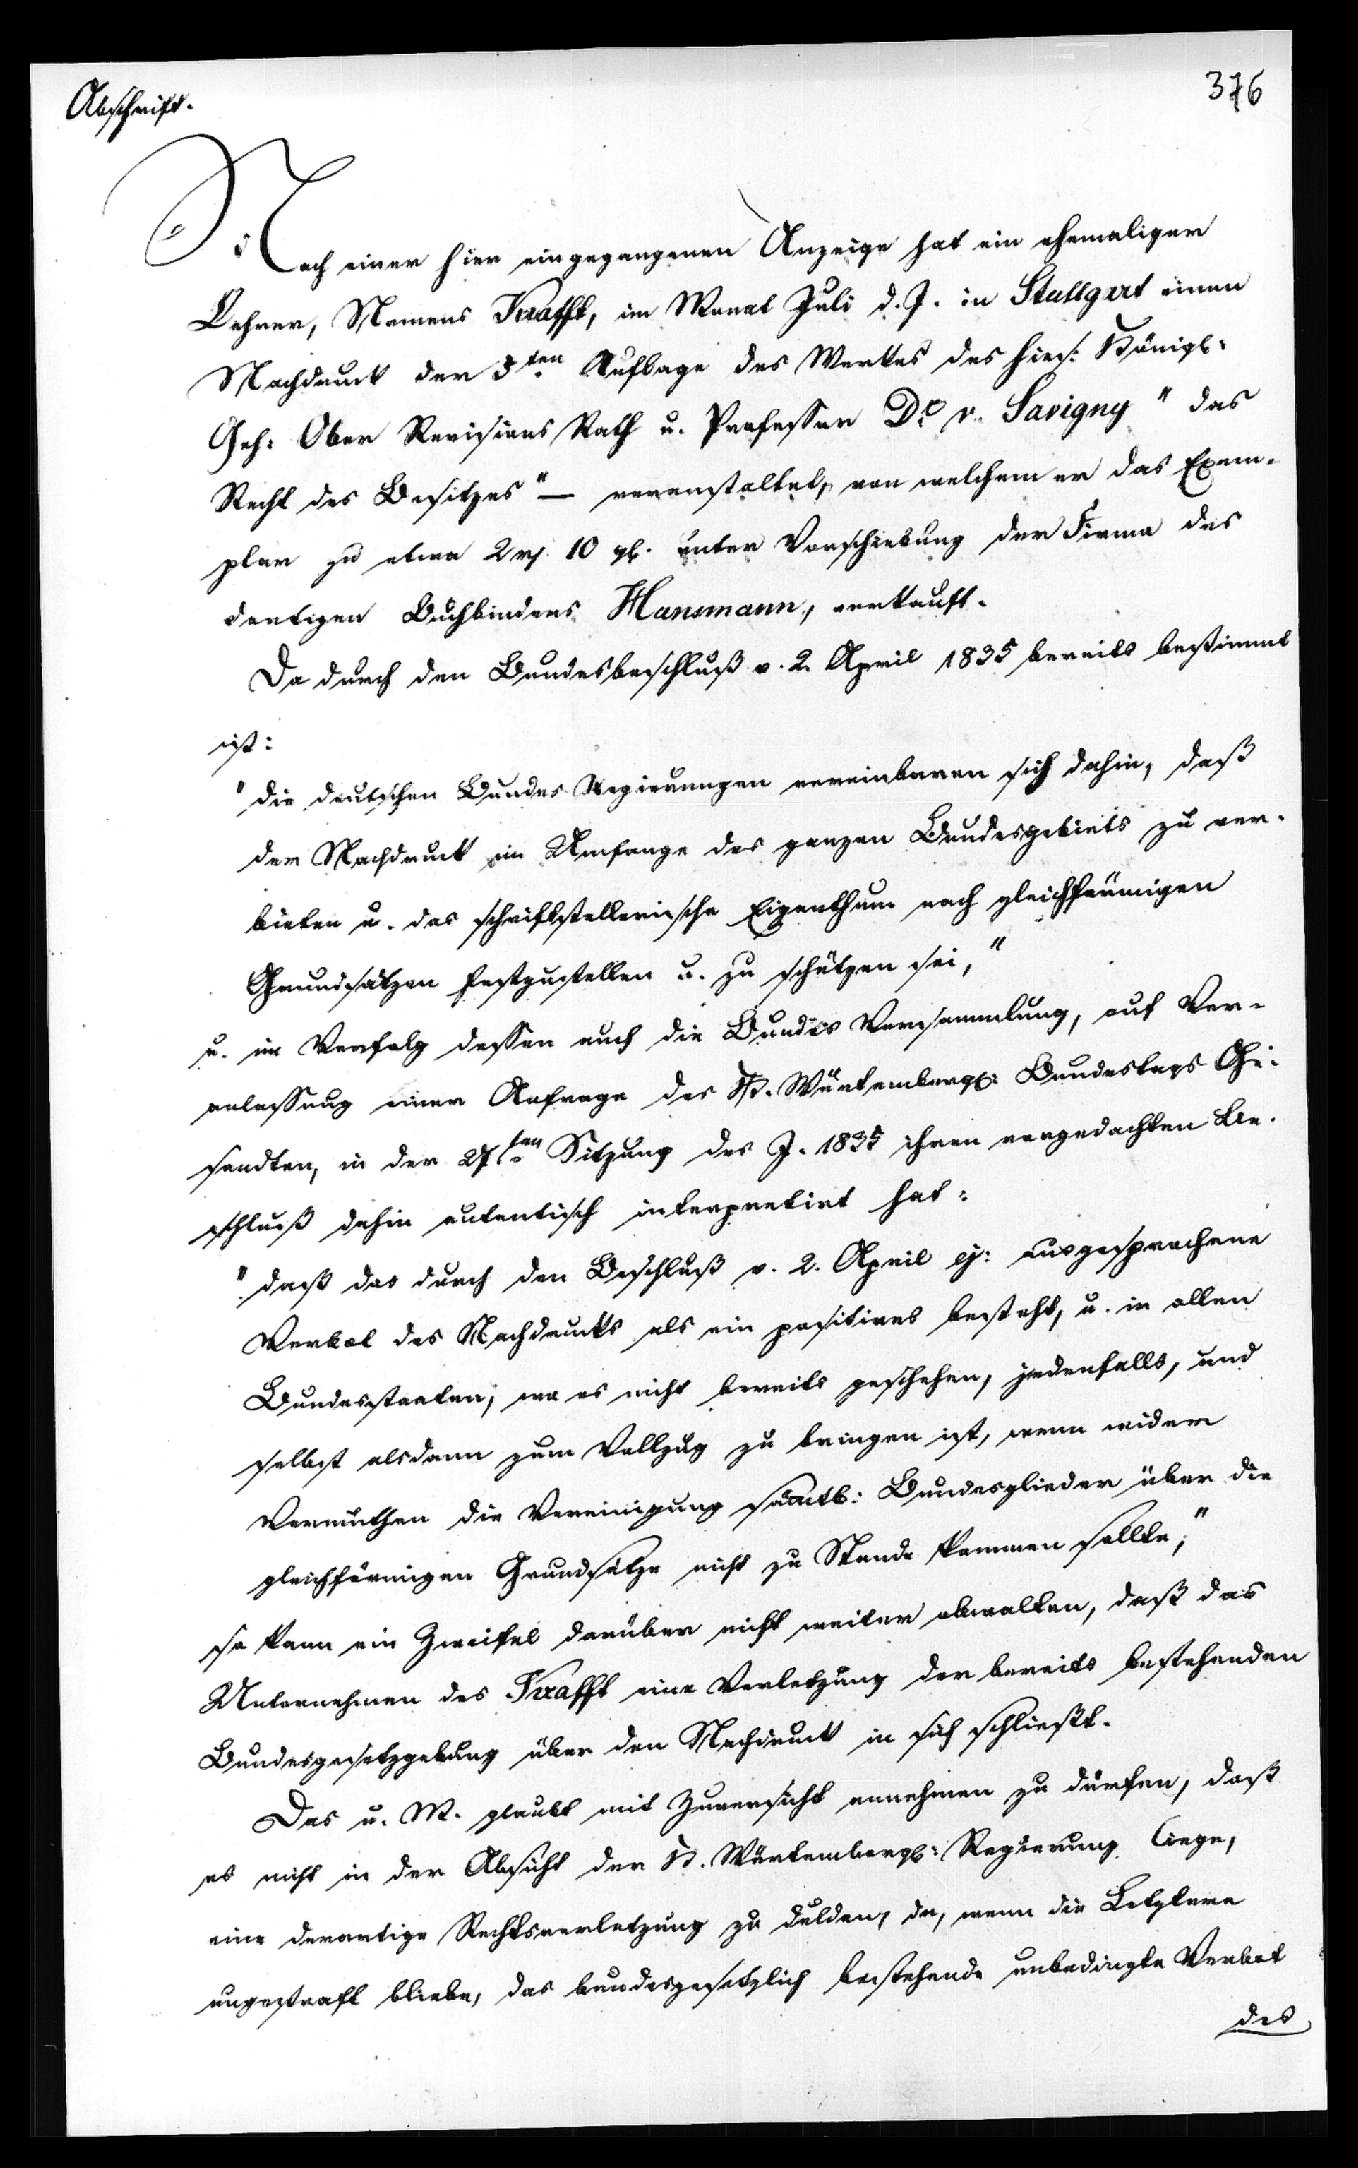 Abschrift.
376
Nach einer hier eingegangenen Anzeige hat ein ehemaliger
Lehrer, Namens Krafft, im Monat Juli d. J. in Stuttgart einen
Nachdruck der 5ten Auflage des Werkes des hies: Königl:
Geh: Ober Revisions Rath u. Professor Dr. v. Savigny "das
Recht des Besitzes" — veranstaltet, von welchem er das Exem-
plar zu etwa 2 rf. 10 gl. unter Vorschiebung der Firma des
dortigen Buchbinders Hansmann, verkauft.
Da durch den Bundesbeschluß v. 2. April 1835 bereits bestimmt
ist:
"die deutschen Bundes Regierungen vereinbaren sich dahin, daß
der Nachdruck im Umfange des ganzen Bundesgebiets zu ver-
bieten u. das schriftstellerische Eigenthum nach gleichförmigen
Grundsätzen festzustellen u. zu schützen sei,"
u. im Verfolg dessen auch die Bundes Versammlung, auf Ver-
anlassung einer Anfrage des K. Würtembergs: Bundestags Ge-
sandten, in der 27ten Sitzung des J. 1835 ihren vorgedachten Be-
schluß dahin autentisch interpretirt hat:
"daß das durch den Beschluß v. 2. April ej: ausgesprochene
Verbot des Nachdrucks als ein positives besteht, u. in allen
Bundesstaaten, wo es nicht bereits geschehen, jedenfalls, und
selbst alsdann zum Vollzug zu bringen ist, wenn wider
Vermuthen die Vereinigung sämtl: Bundesglieder über die
gleichförmigen Grundsätze nicht zu Stande kommen sollte,"
so kann ein Zweifel darüber nicht weiter obwalten, daß das
Unternehmen des Krafft eine Verletzung der bereits bestehenden
Bundesgesetzgebung über den Nachdruck in sich schließt.
Das u. M. glaubt mit Zuversicht annehmen zu dürfen, daß
es nicht in der Absicht der K. Würtembergs: Regierung liege,
eine derartige Rechtsverletzung zu dulden, da, wenn die Letztere
ungestraft bliebe, das bundesgesetzlich bestehende unbedingte Verbot
des